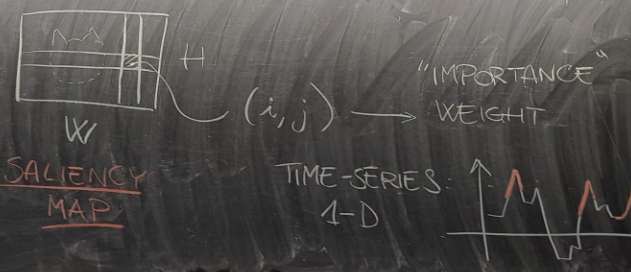 H
"IMPORTANCE"
(i,j) → WEIGHT
W
SALIENCY
MAP
TIME-SERIES:
1-D